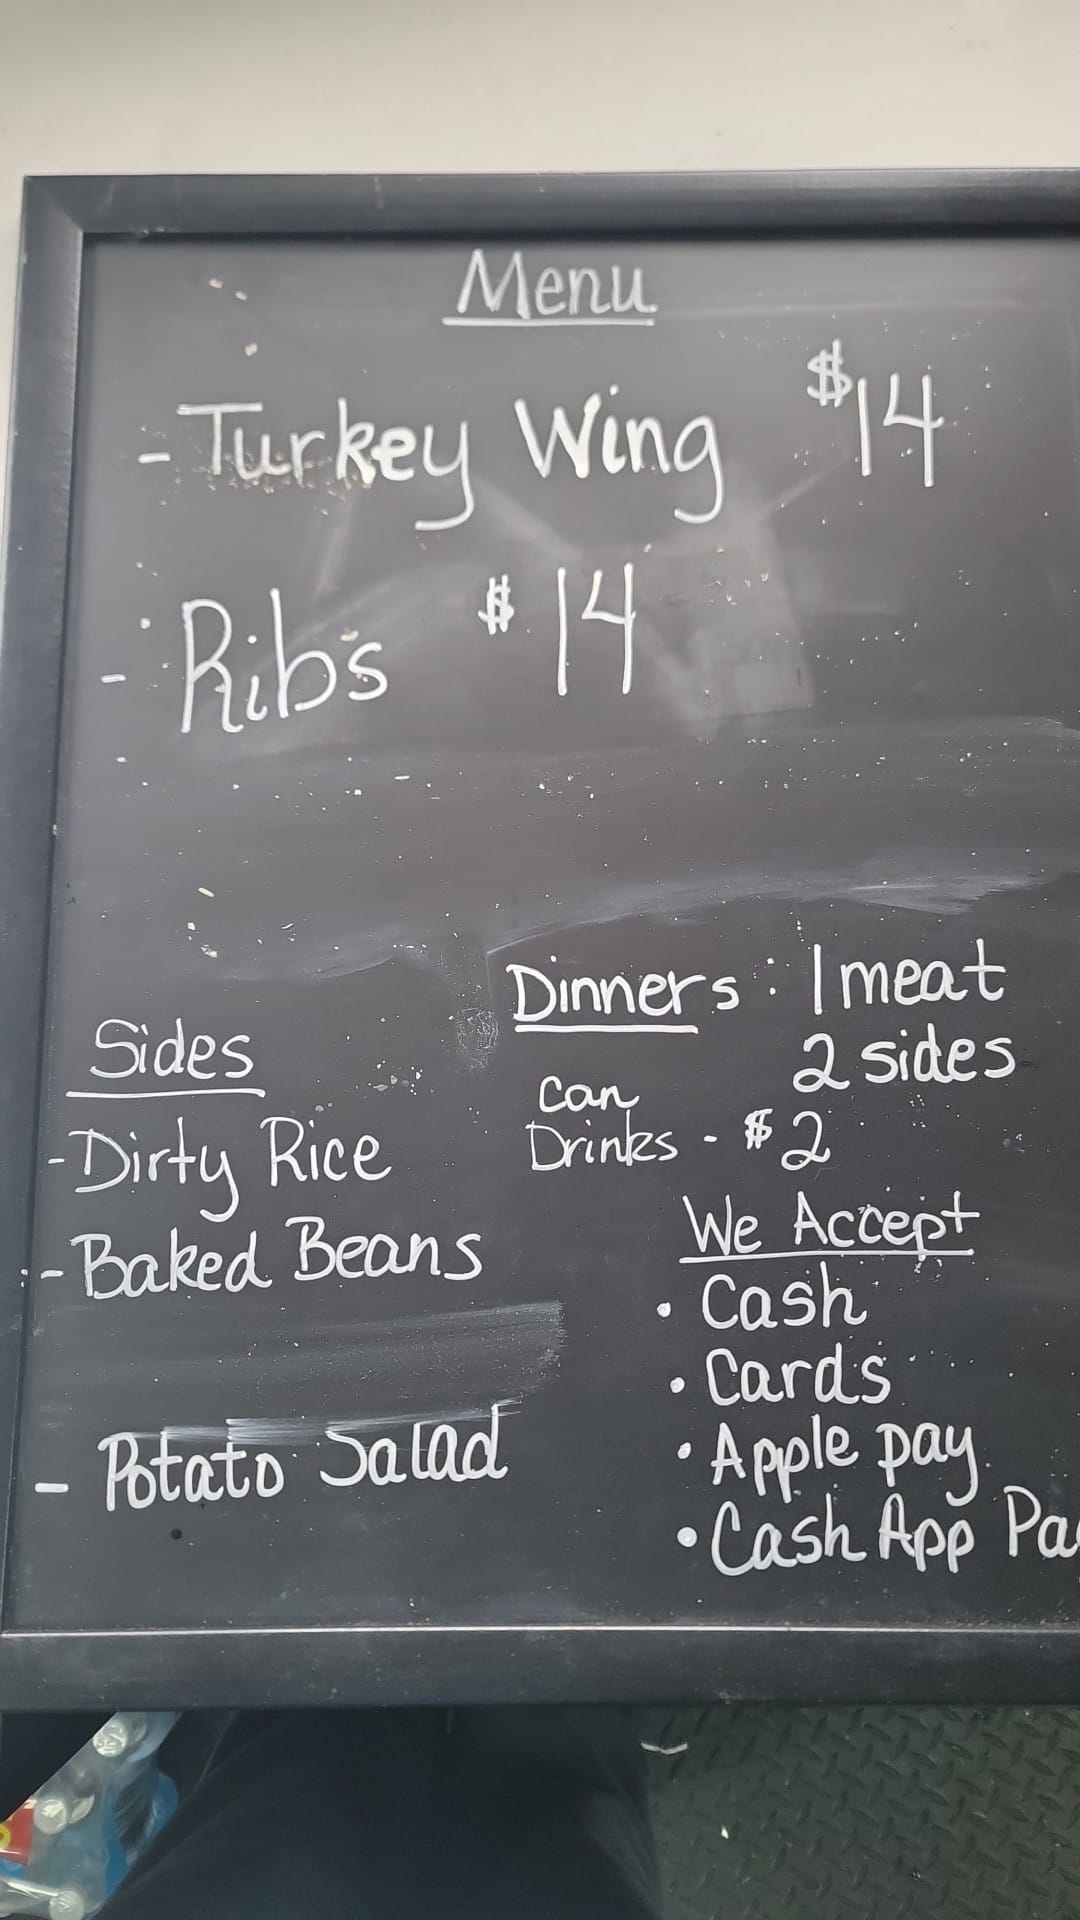 Menu
- Turkey Wing $14
- Ribs $14
Sides
- Dirty Rice
- Baked Beans
- Potato Salad
Dinners: 1 meat
2 sides
Can
Drinks - $2
We Accept
• Cash
• Cards
• Apple pay
• Cash App Pa